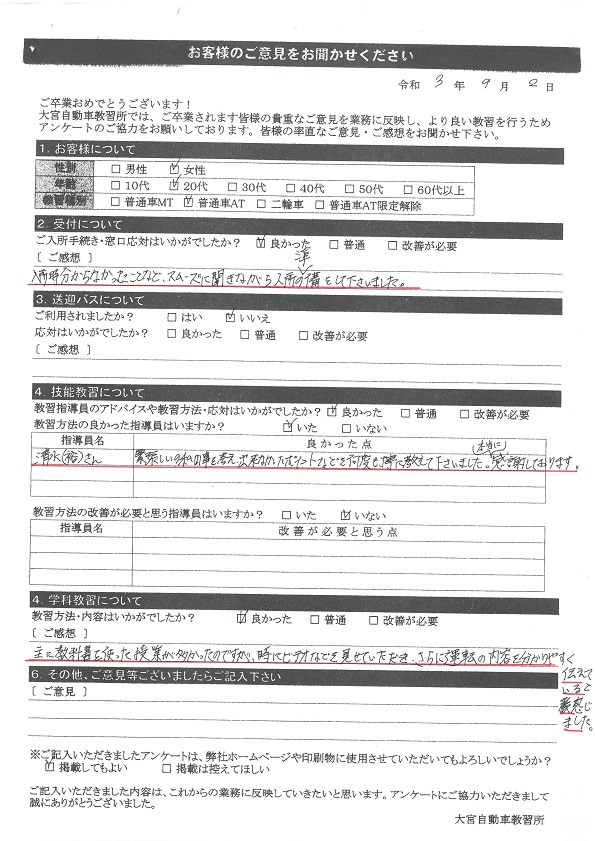 お客様のご意見をお聞かせください
令和 3 年 9 月 2 日
ご卒業おめでとうございます!
大宮自動車教習所では、ご卒業されます皆様の貴重なご意見を業務に反映し、より良い教習を行うため
アンケートのご協力をお願いしております。皆様の率直なご意見・ご感想をお聞かせ下さい。
1. お客様について
性別 □ 男性 ☑ 女性
年齢 □ 10代 ☑ 20代 □ 30代 □ 40代 □ 50代 □ 60代以上
教習種別 □ 普通車MT ☑ 普通車AT □ 二輪車 □ 普通車AT限定解除
2. 受付について
ご入所手続き・窓口応対はいかがでしたか? ☑ 良かった □ 普通 □ 改善が必要
〔 ご感想 〕
入所時分からなかったことなど、スムーズに聞きながら入所の準備をして下さいました。
3. 送迎バスについて
ご利用されましたか? □ はい ☑ いいえ
応対はいかがでしたか? □ 良かった □ 普通 □ 改善が必要
〔 ご感想 〕
4. 技能教習について
教習指導員のアドバイスや教習方法・応対はいかがでしたか? ☑ 良かった □ 普通 □ 改善が必要
教習方法の良かった指導員はいますか? ☑ いた □ いない
指導員名 良かった点
清水(裕)さん 緊張しいの私の事を考え、出来なかったポイントなどを何度も丁寧に教えて下さいました。(本当に)感謝しております。
教習方法の改善が必要と思う指導員はいますか? □ いた ☑ いない
指導員名 改善が必要と思う点
4. 学科教習について
教習方法・内容はいかがでしたか? ☑ 良かった □ 普通 □ 改善が必要
〔 ご感想 〕
主に教科書を使った授業が多かったのですが、時にビデオなどを見せていただき、さらに運転の内容を分かりやすく
伝えて
いると
感じ
ました。
6. その他、ご意見等ございましたらご記入下さい
〔 ご意見 〕
※ご記入いただきましたアンケートは、弊社ホームページや印刷物に使用させていただいてもよろしいでしょうか?
☑ 掲載してもよい □ 掲載は控えてほしい
ご記入いただきました内容は、これからの業務に反映していきたいと思います。アンケートにご協力いただきまして
誠にありがとうございました。
大宮自動車教習所